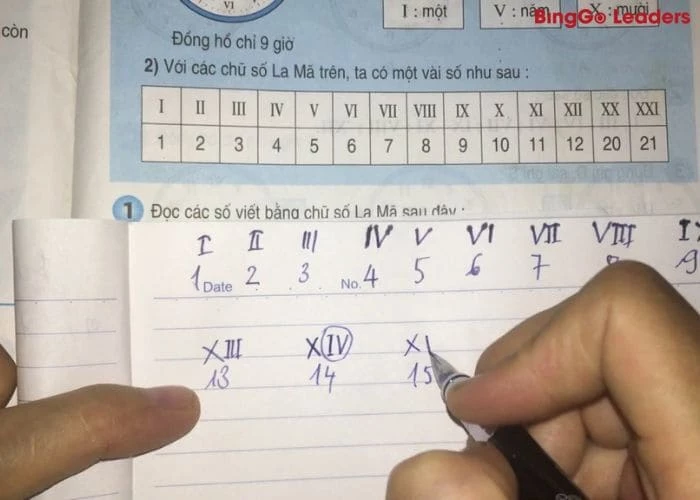 còn
VI
I : một
V : năm
X : mười
BingGo Leaders
Đồng hồ chỉ 9 giờ
2) Với các chữ số La Mã trên, ta có một vài số như sau :
I II III IV V VI VII VIII IX X XI XII XX XXI
1 2 3 4 5 6 7 8 9 10 11 12 20 21
1 Đọc các số viết bằng chữ số La Mã sau đây :
I II III IV V VI VII VIII
1 2 3 4 5 6 7 9
Date No.
XIII XIV
13 14 15